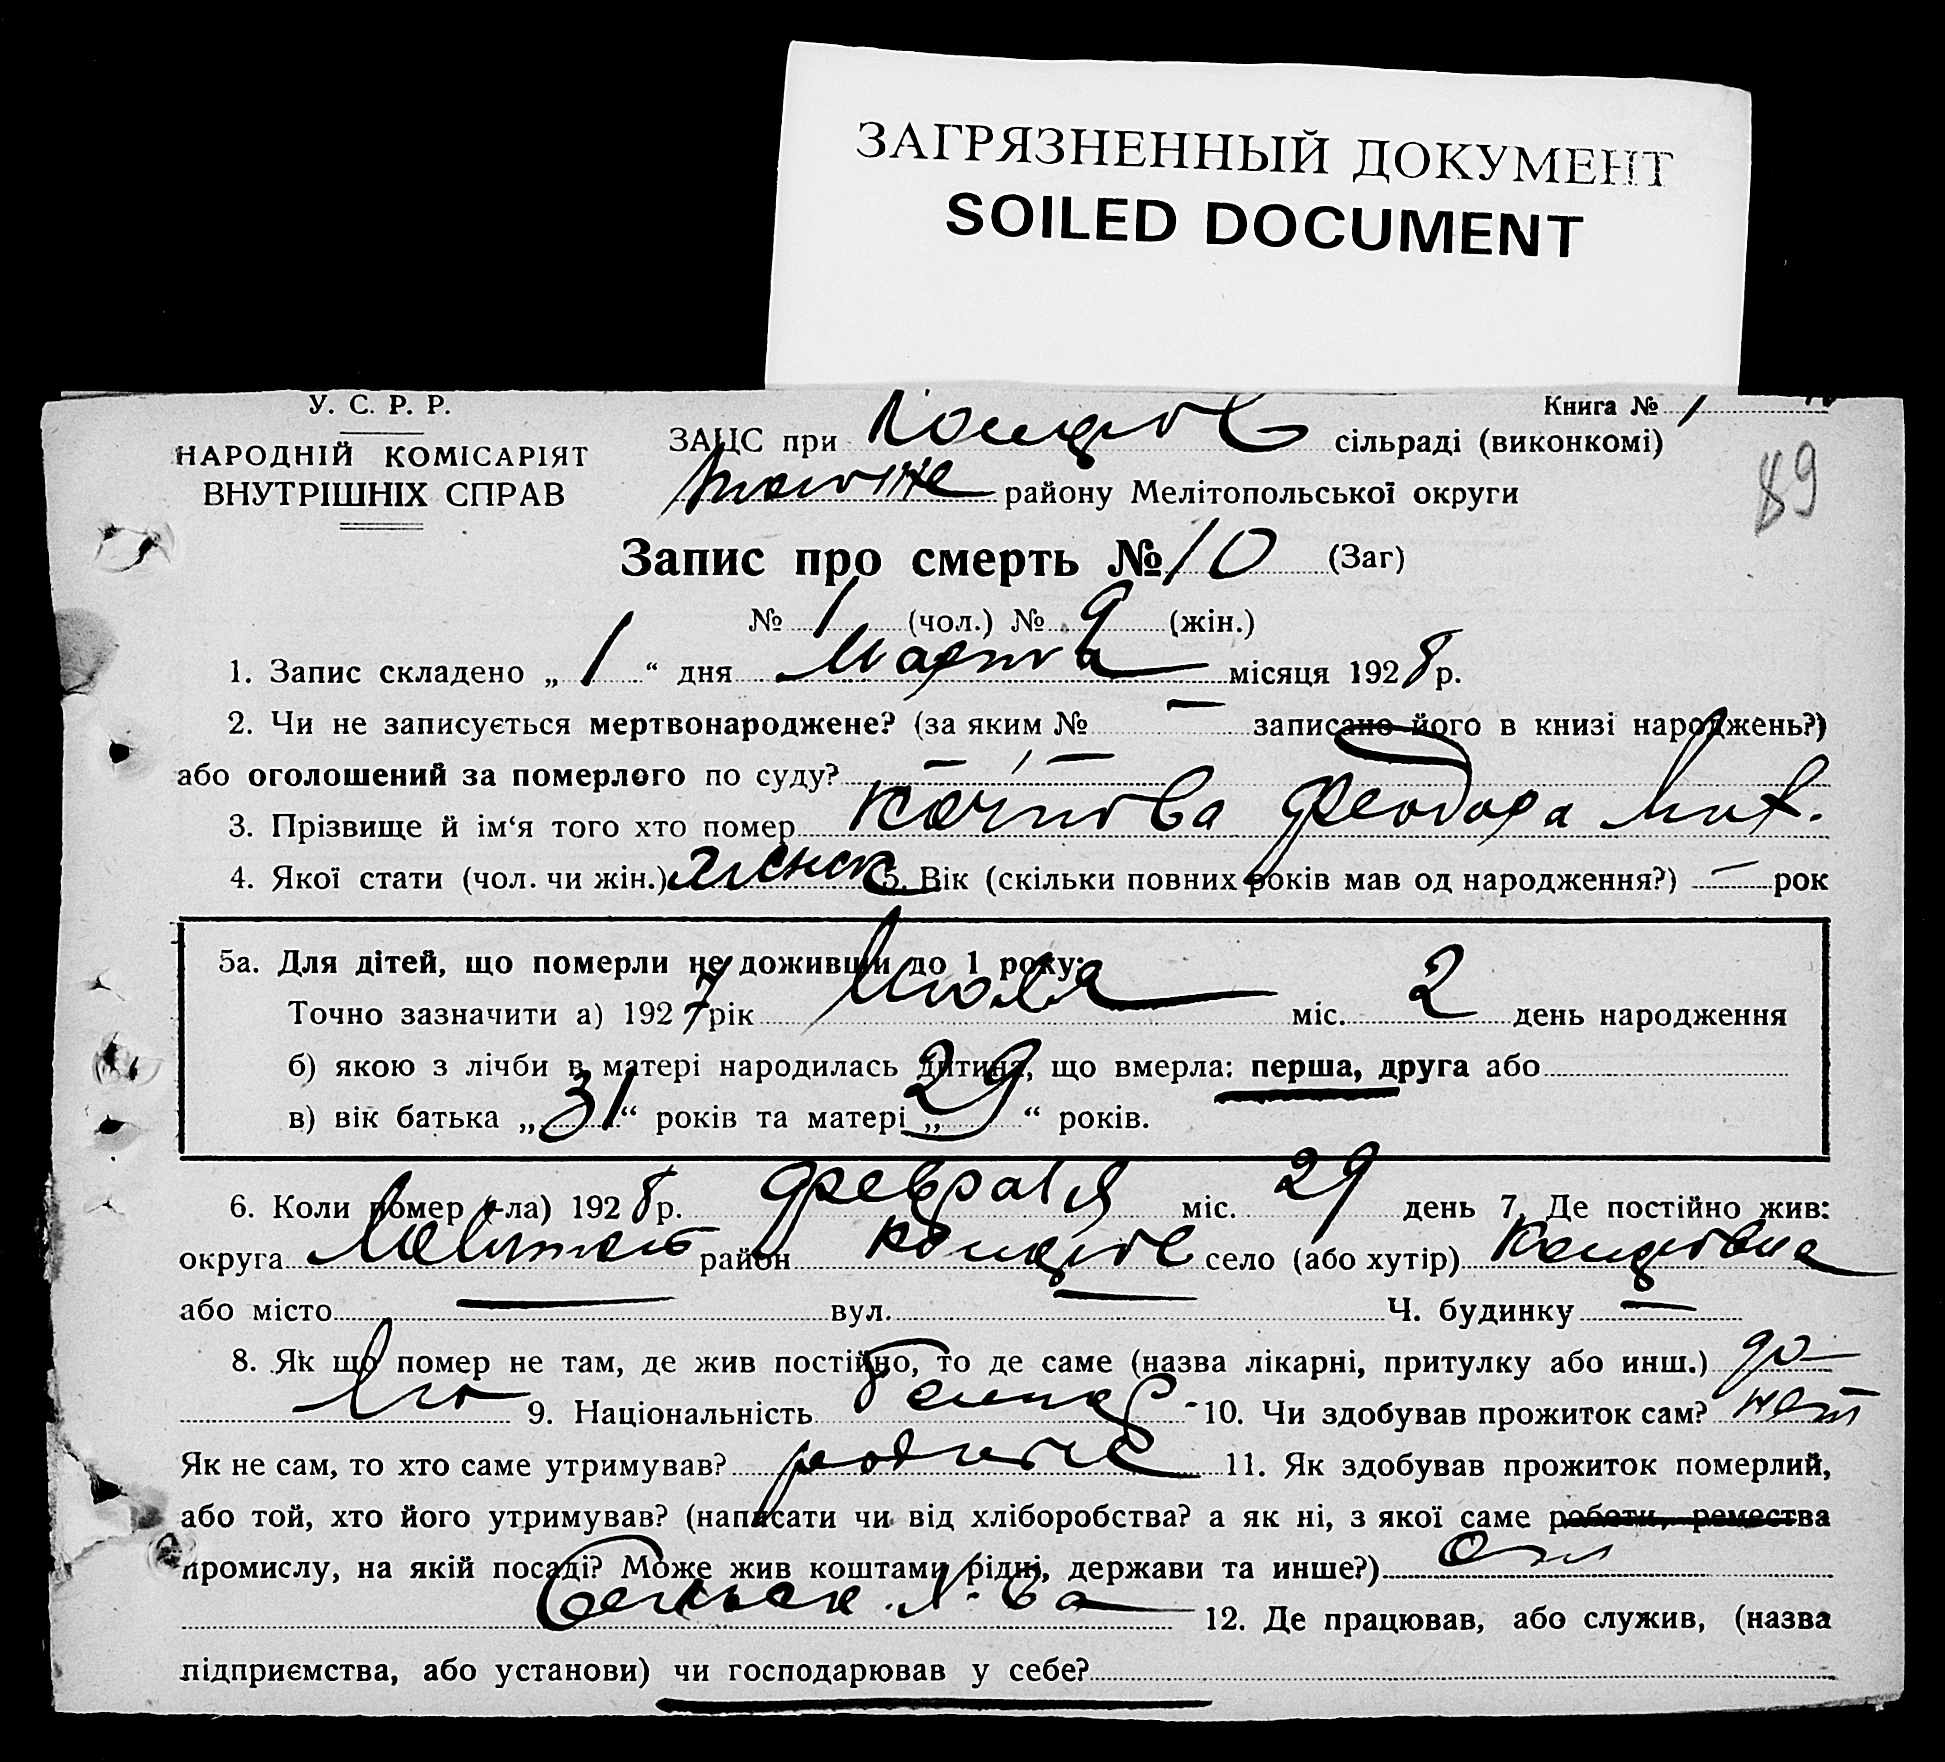 ЗАГРЯЗНЕННЫЙ ДОКУМЕНТ
SOILED DOCUMENT
У. С. Р. Р.
НАРОДНІЙ КОМІСАРІЯТ
ВНУТРІШНІХ СПРАВ
Книга № 1
ЗАЦС при сільраді (виконкомі)
району Мелітопольської округи
89
Запис про смерть № 10 (Заг)
№ 1 (чол.) № 9 (жін.)
1. Запис складено „ 1 “ дня Марта місяця 1928 р.
2. Чи не записується мертвонароджене? (за яким № — записано його в книзі народжень?)
або оголошений за померлого по суду? —
3. Прізвище й ім‘я того хто помер Феодора Мих.
4. Якої стати (чол. чи жін.) женск 5. Вік (скільки повних років мав од народження?) — рок
5а. Для дітей, що померли не доживши до 1 року:
Точно зазначити а) 1927 рік Июля міс. 2 день народження
б) якою з лічби в матері народилась дитина, що вмерла: перша, друга або
в) вік батька „ 31 “ років та матері „ 29 “ років.
6. Коли помер (-ла) 1928 р. февраля міс. 29 день 7. Де постійно жив:
округа район село (або хутір)
або місто — вул. — Ч. будинку —
8. Як що помер не там, де жив постійно, то де саме (назва лікарні, притулку або инш.)
9. Національність 10. Чи здобував прожиток сам? нет
Як не сам, то хто саме утримував? 11. Як здобував прожиток померлий,
або той, хто його утримував? (написати чи від хліборобства? а як ні, з якої саме роботи, ремества
промислу, на якій посаді? Може жив коштами рідні, держави та инше?) От
Сельск. х-ва 12. Де працював, або служив, (назва
підприємства, або установи) чи господарював у себе?